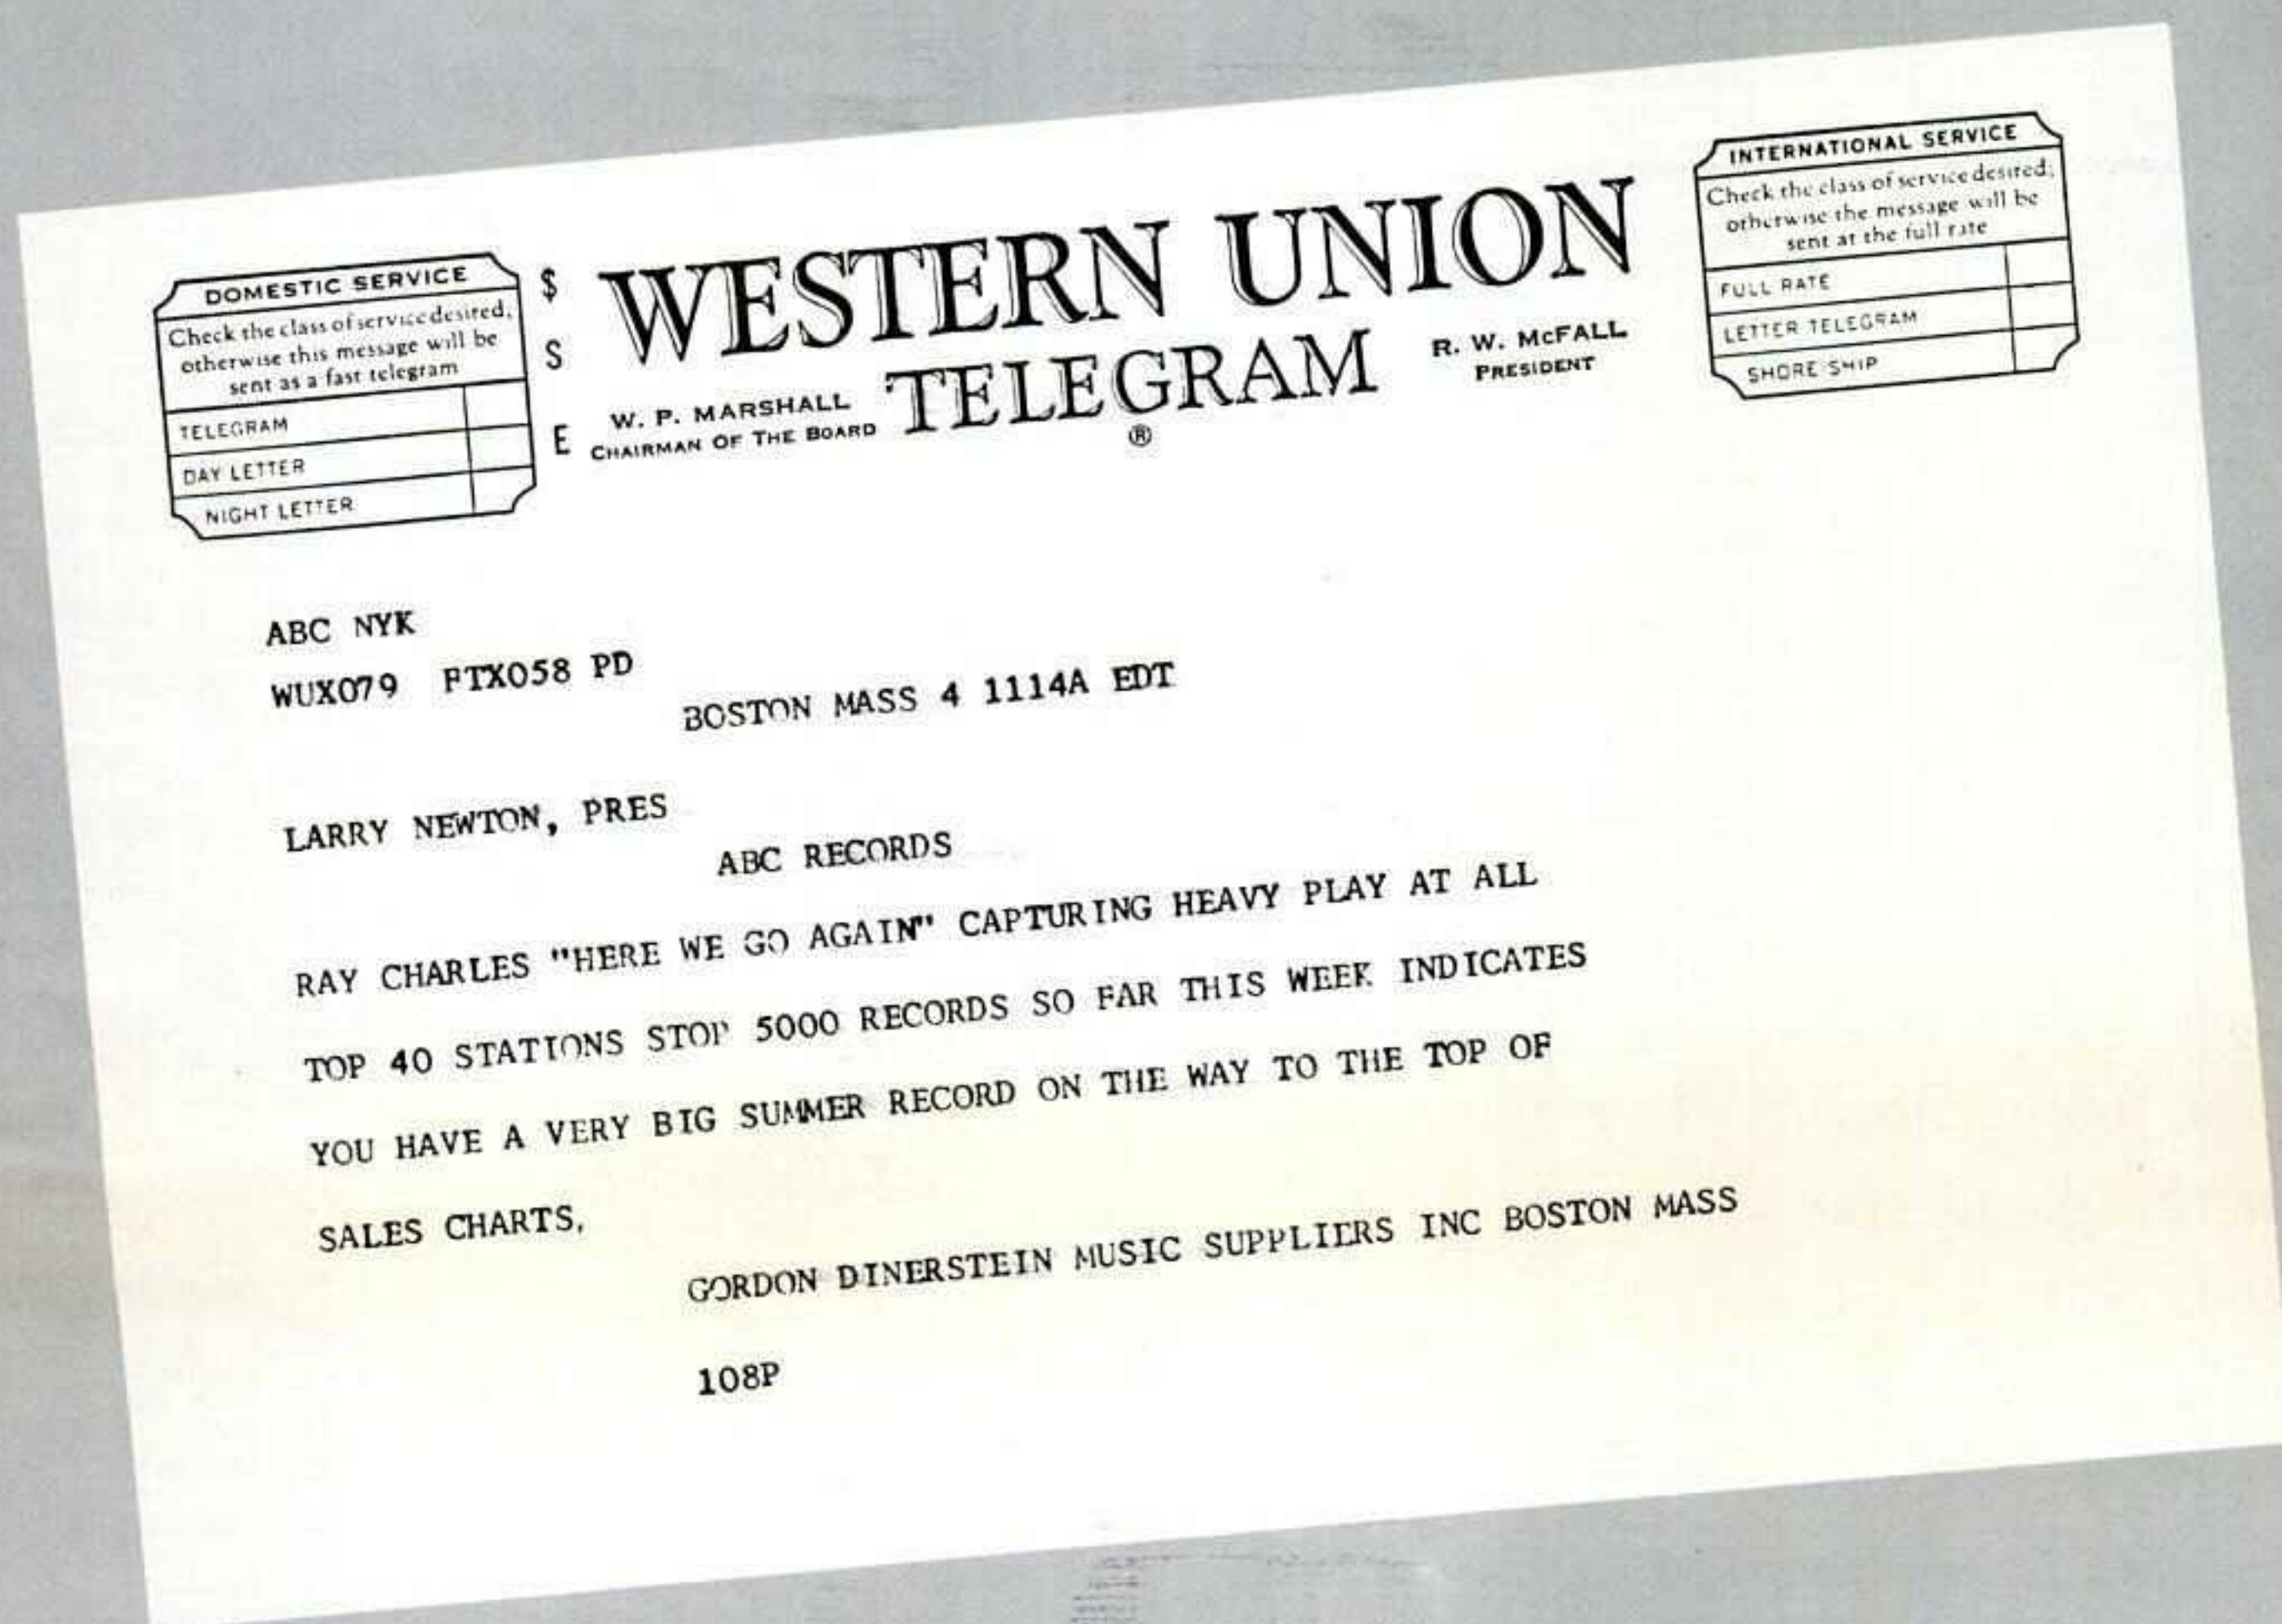 DOMESTIC SERVICE
Check the class of service desired,
otherwise this message will be
sent as a fast telegram
TELEGRAM
DAY LETTER
NIGHT LETTER
$
S
E
WESTERN UNION
TELEGRAM
®
W. P. MARSHALL
CHAIRMAN OF THE BOARD
R. W. McFALL
PRESIDENT
INTERNATIONAL SERVICE
Check the class of service desired;
otherwise the message will be
sent at the full rate
FULL RATE
LETTER TELEGRAM
SHORE SHIP
ABC NYK
WUX079 FTX058 PD
BOSTON MASS 4 1114A EDT
LARRY NEWTON, PRES
ABC RECORDS
RAY CHARLES "HERE WE GO AGAIN" CAPTURING HEAVY PLAY AT ALL
TOP 40 STATIONS STOP 5000 RECORDS SO FAR THIS WEEK INDICATES
YOU HAVE A VERY BIG SUMMER RECORD ON THE WAY TO THE TOP OF
SALES CHARTS,
GORDON DINERSTEIN MUSIC SUPPLIERS INC BOSTON MASS
108P